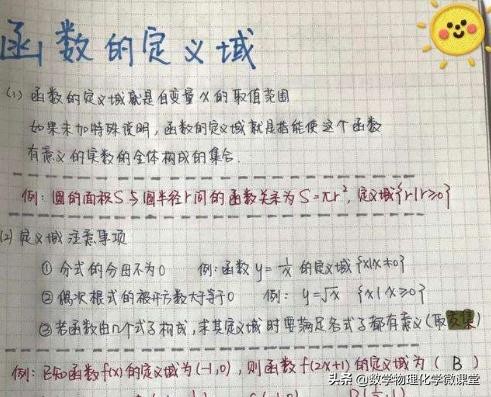 函数的定义域
(1) 函数的定义域就是自变量x的取值范围
如果未加特殊说明，函数的定义域就是指能使这个函数
有意义的实数的全体构成的集合.
例：圆的面积S与圆半径r间的函数关系为S=πr²，定义域{r|r≥0}
(2) 定义域注意事项
① 分式的分母不为0 例：函数y=1/x的定义域{x|x≠0}
② 偶次根式的被开方数大于等于0 例：y=√x {x|x≥0}
③ 若函数由n个式子构成，求其定义域时要满足各式子都有意义(取交集)
例：已知函数f(x)的定义域为(-1,0)，则函数f(2x+1)的定义域为(B)
头条 @数学物理化学微课堂